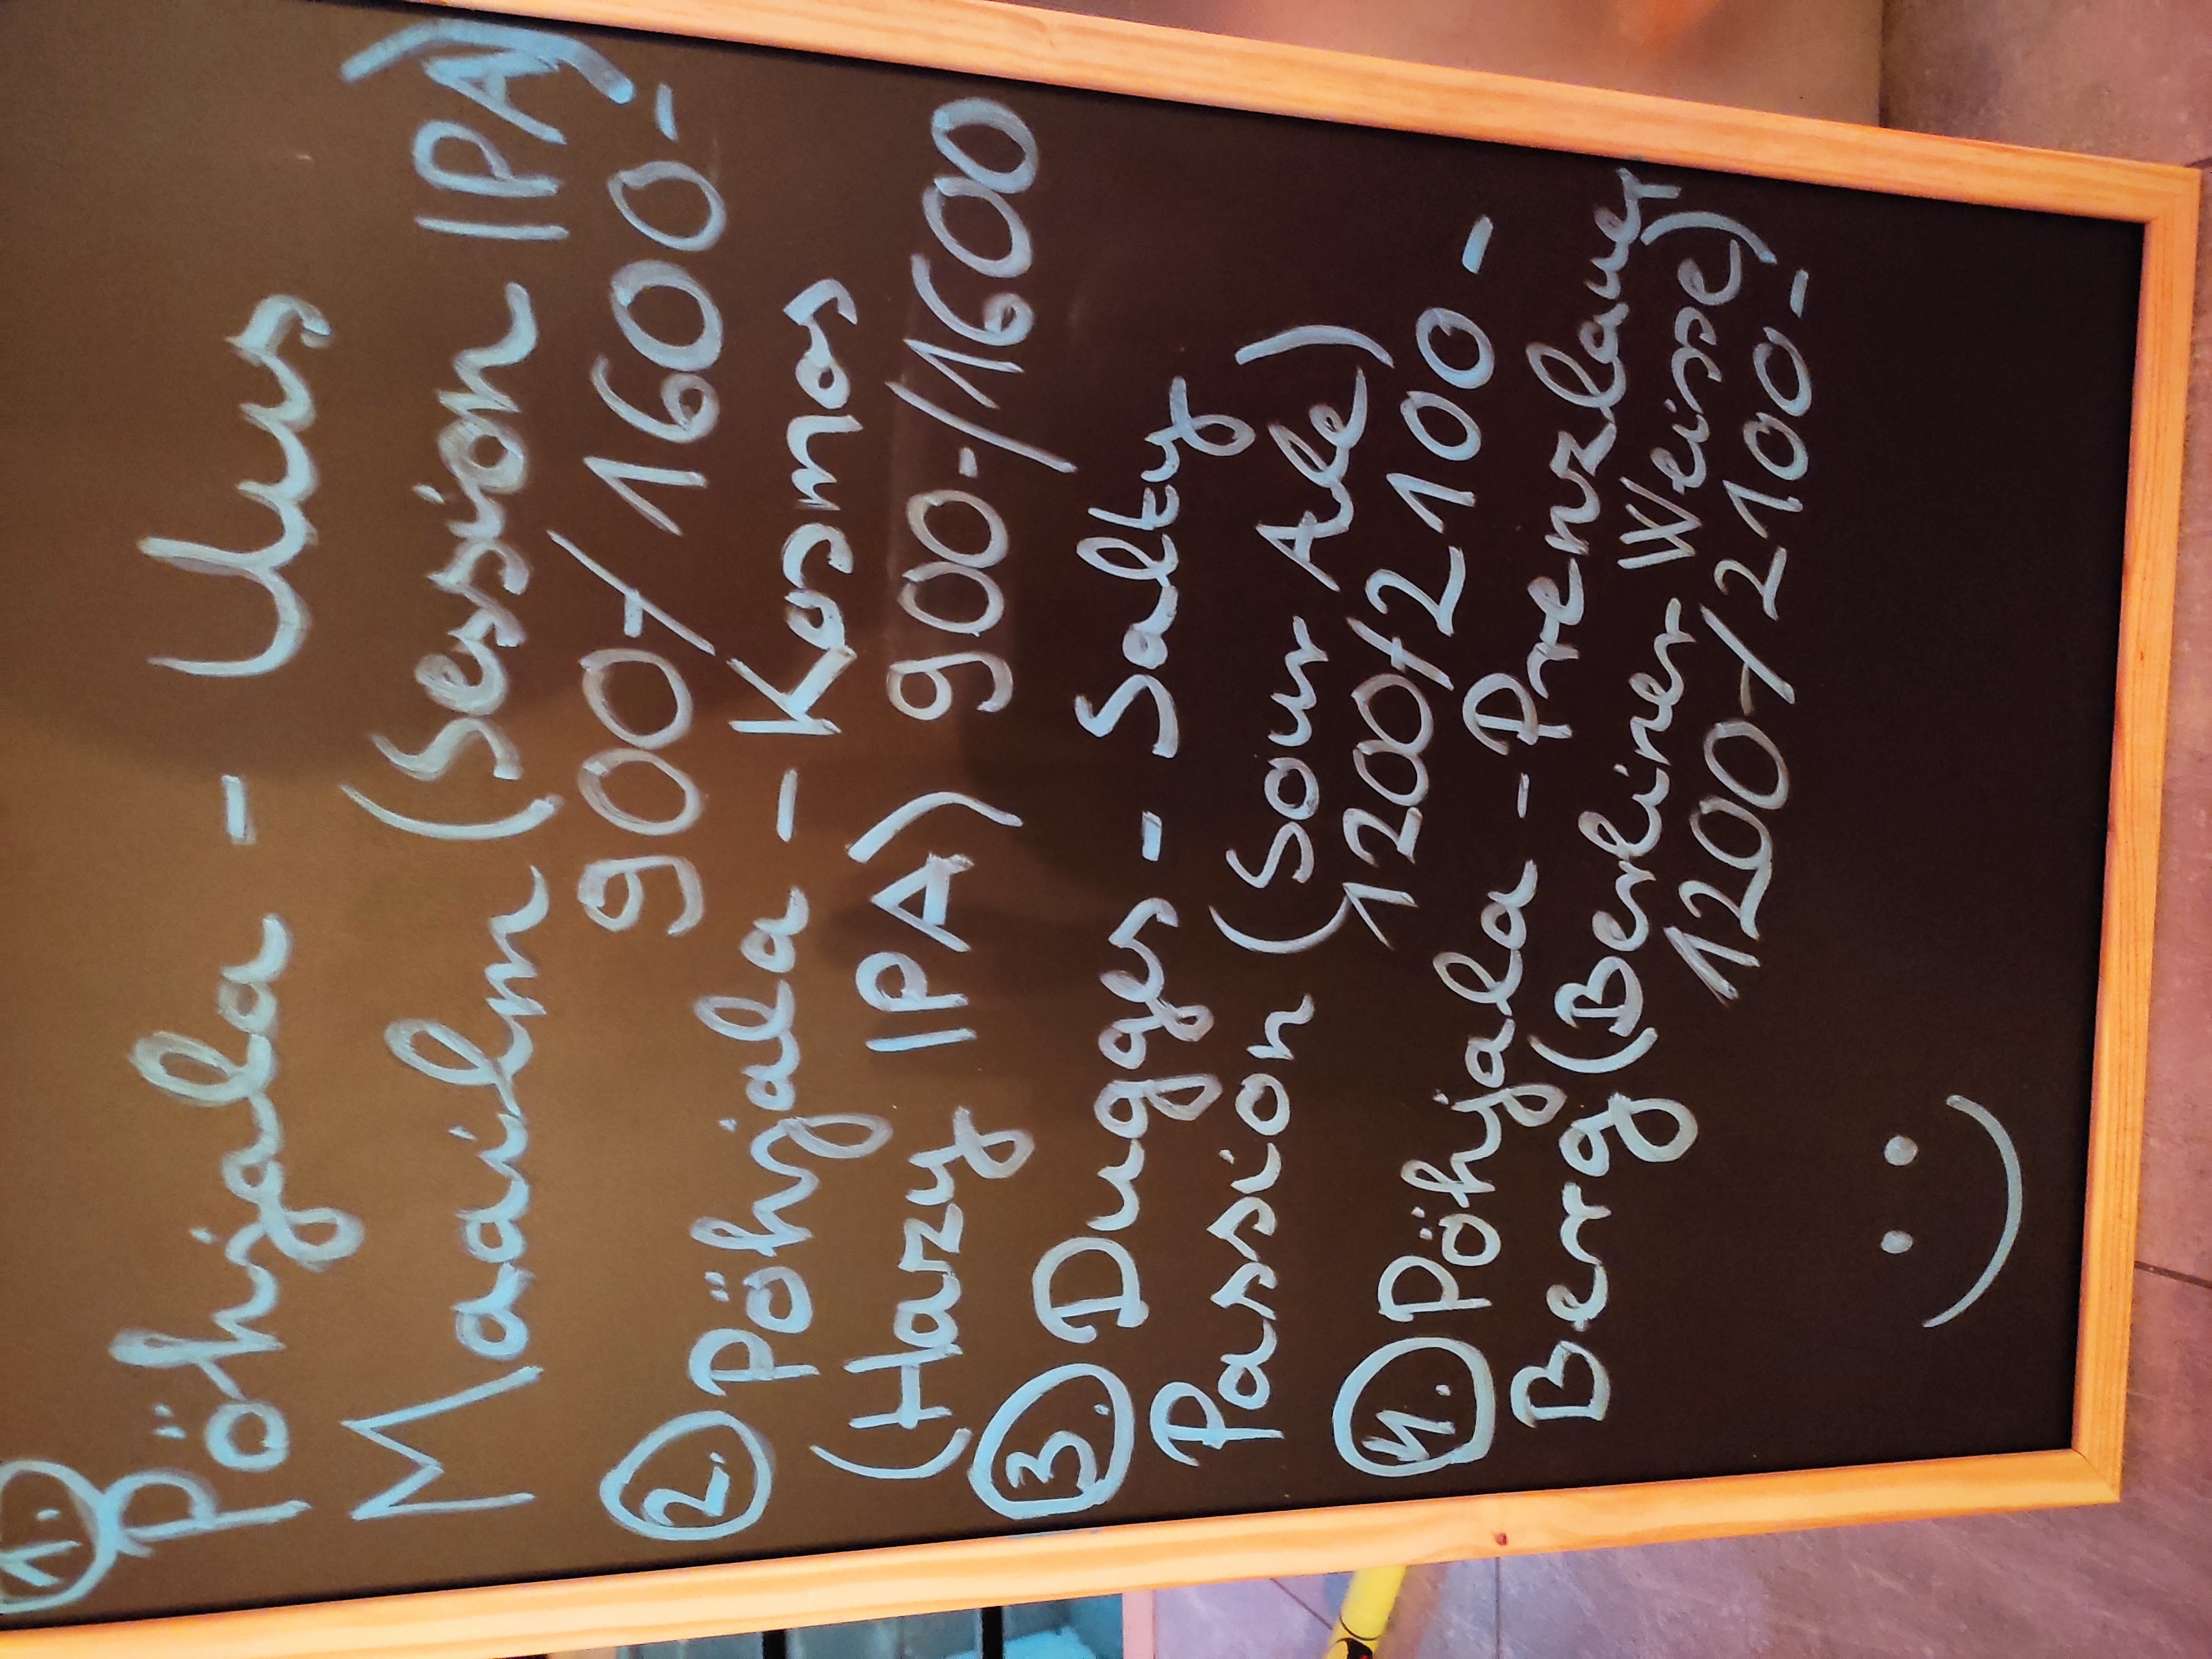 1.
Pöhjala - Uus
Maailm (Session IPA)
900-/1600-
2. Pöhjala - Kosmos
(Hazy IPA) 900-/1600
3. Dugges - Salty
Passion (Sour Ale)
1200-/2100-
4. Pöhjala - Prenzlauer
Berg (Berliner Weisse)
1200-/2100-